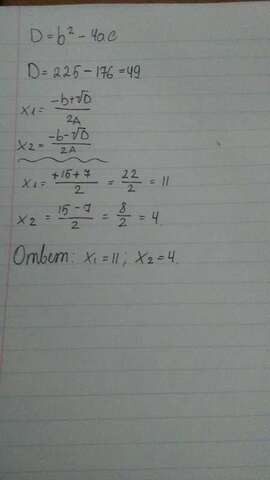 D = b² - 4ac
D = 225 - 176 = 49
x₁ = (-b+√D)/2A
x₂ = (-b-√D)/2A
x₁ = (+15+7)/2 = 22/2 = 11
x₂ = (15-7)/2 = 8/2 = 4
Ответ: x₁ = 11; x₂ = 4.